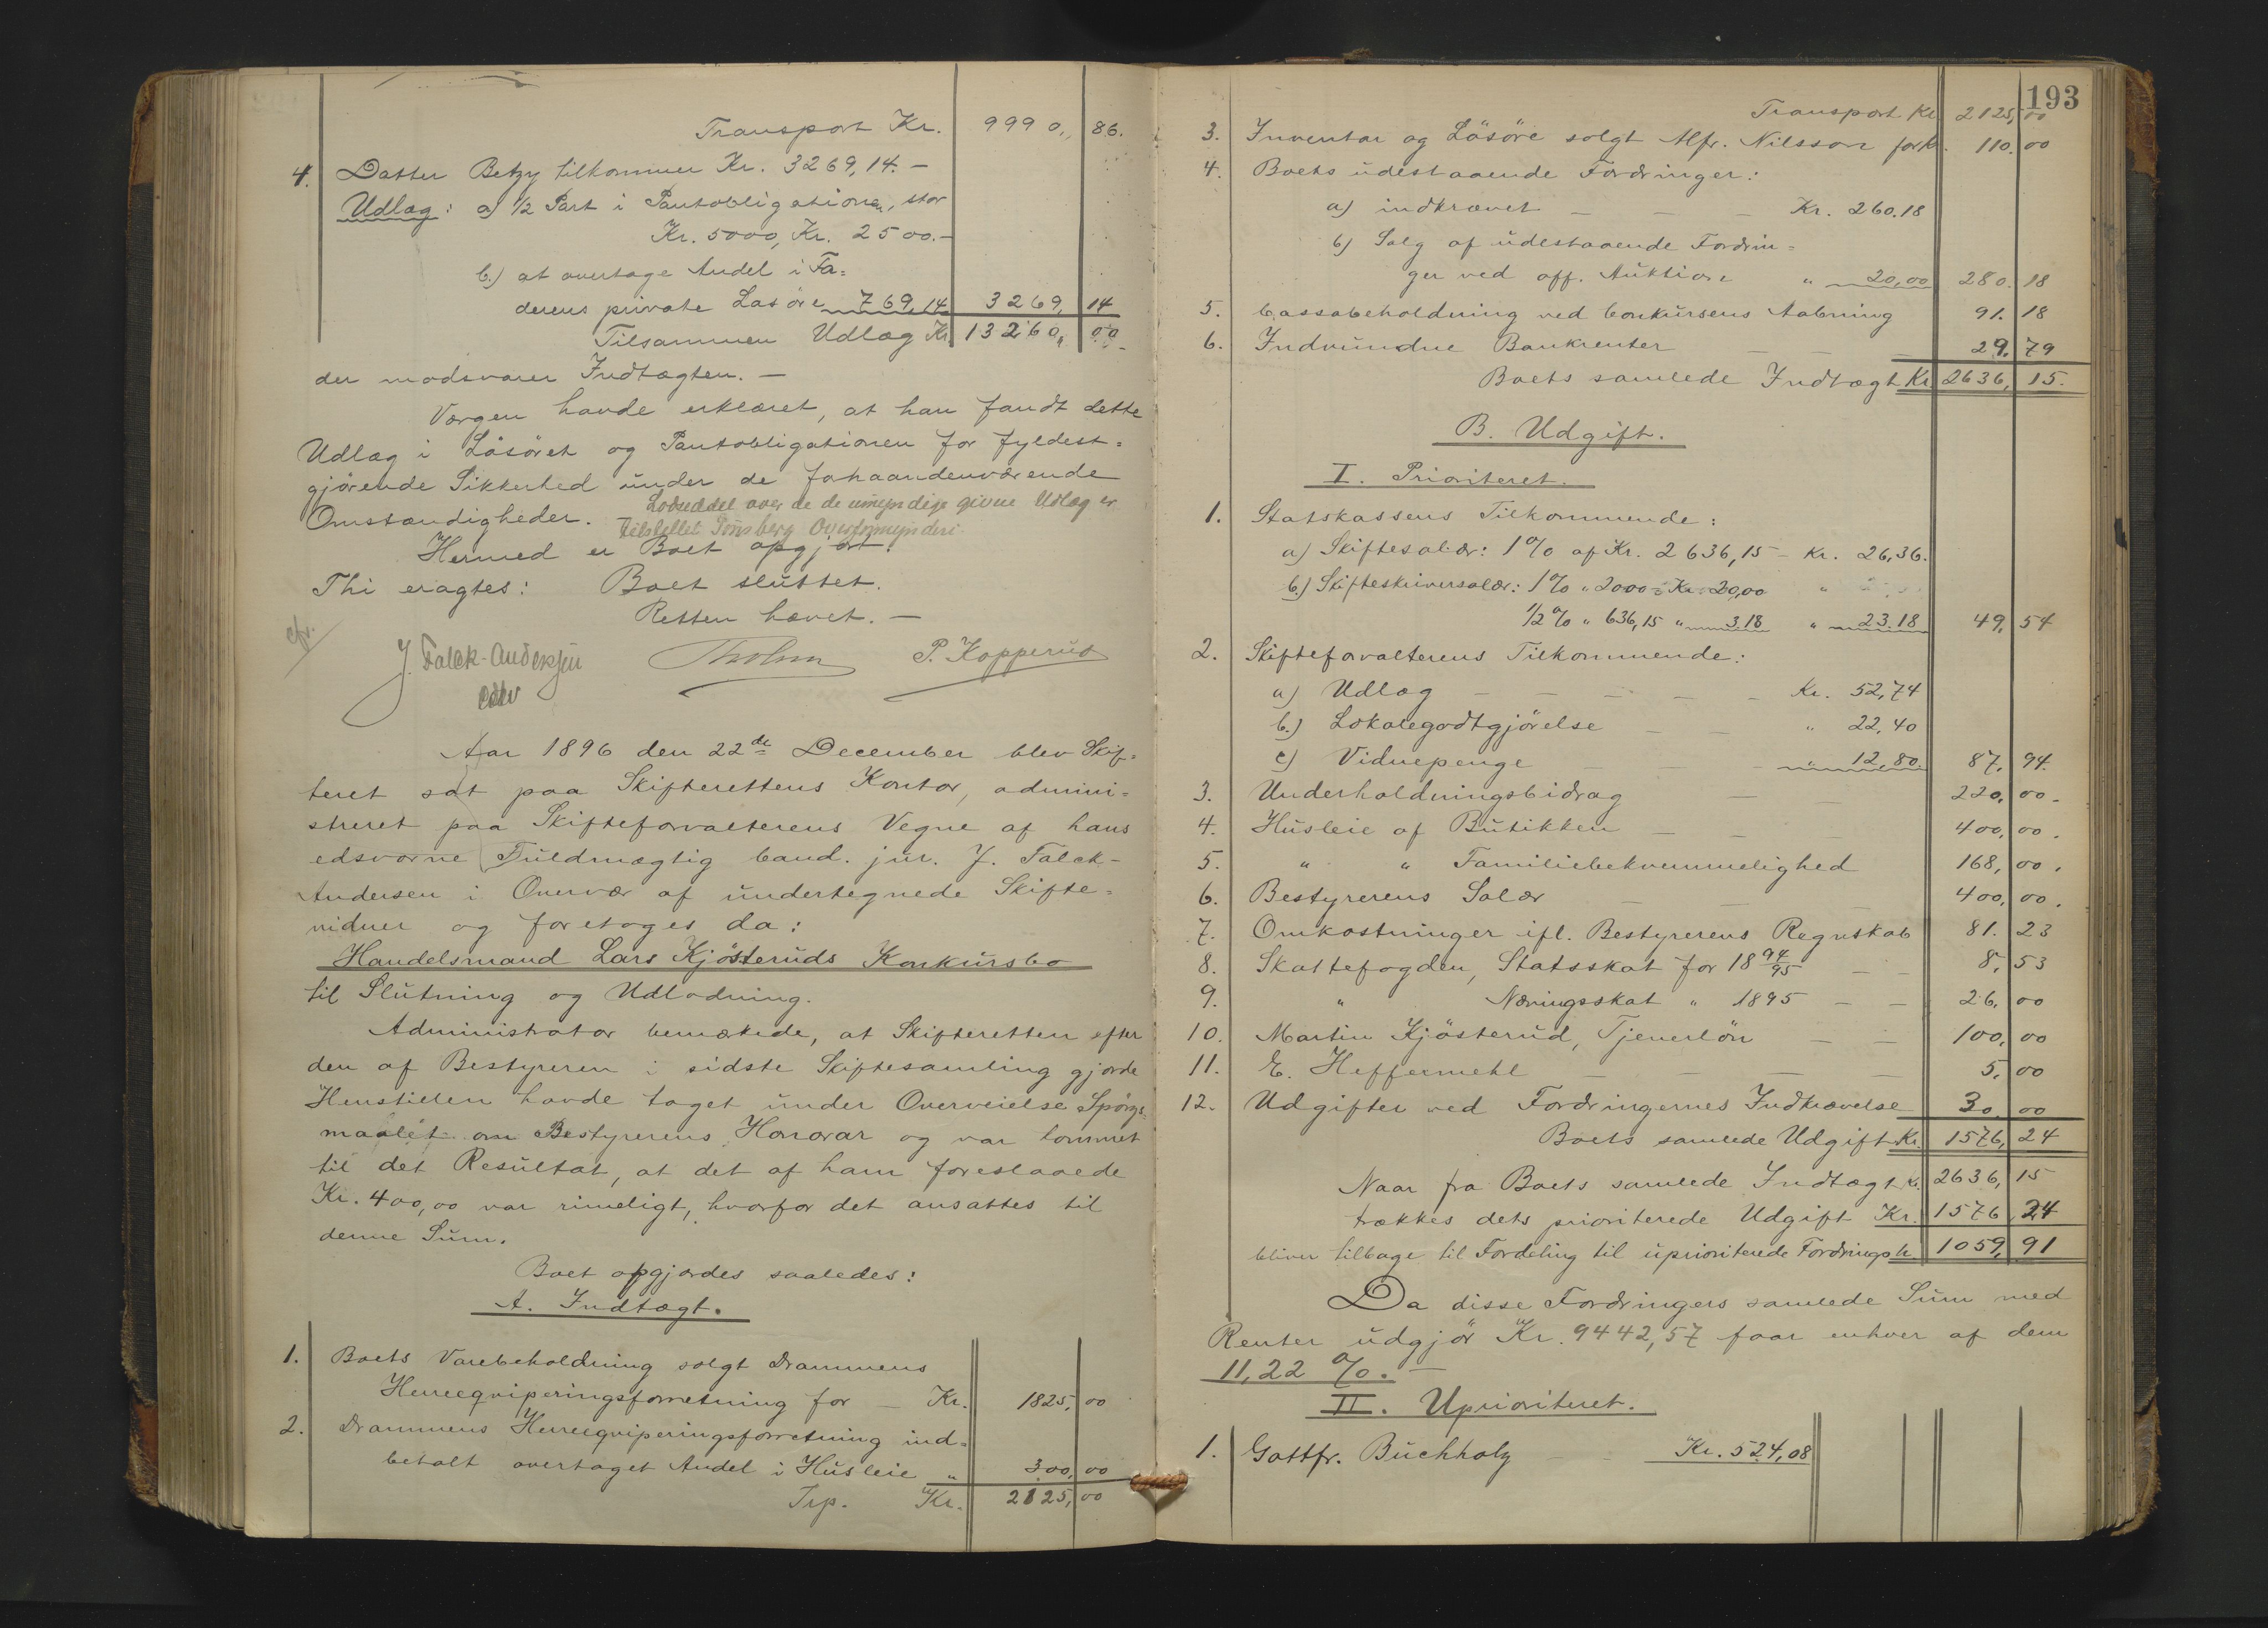 Transport Kr. 9990,, 86.
4. Datter Betzy tilkommer Kr. 3269,14. –
Udlæg: a) 1/2 Part i Pantobligationen, stor
Kr. 5000, Kr. 2500. –
b.) at overtage Andel i Fa=
derens private Løsøre 769,14 3269, 14
Tilsammen Udlæg Kr. 13260,, 00
der modsvarer Indtægten. –
Værgen havde erklæret, at han fandt dette
Udlæg i Løsøret og Pantobligationen for fyldest=
gjørende Sikkerhed under de forhaandenværende
Omstændigheder. – Lodseddel over de de umyndige givne Udlæg er
tilstillet Tønsberg Overformynderi
Hermed er Boet opgjort.
Thi eragtes: Boet sluttet.
Retten hævet. –
cfr.
J. Falck-Andersen Tholm P. Kopperud
edsv
Aar 1896 den 22de December blev Skif=
teret sat paa Skifterettens Kontor, admini=
streret paa Skifteforvalterens Vegne af hans
edsvorne Fuldmægtig cand. jur. J. Falck-
Andersen i Overvær af undertegnede Skifte=
vidner og foretoges da:
Handelsmand Lars Kjøsteruds Konkursbo
til Slutning og Udlodning.
Administrator bemærkede, at Skifteretten efter
den af Bestyreren i sidste Skiftesamling gjorde
Henstillen havde taget under Overveielse Spørgs=
maalet om Bestyrerens Honorar og var kommet
til det Resultat, at det af ham foreslaaede
Kr. 400,00 var rimeligt, hvorfor det ansattes til
denne Sum.
Boet opgjordes saaledes:
A. Indtægt.
1. Boets Varebeholdning solgt Drammens
Herreeqviperingsforretning for – Kr. 1825, 00
2. Drammens Herreeqviperingsforretning ind=
betalt overtaget Andel i Husleie " 300, 00
Trp. Kr. 2125, 00
193
Transport Kr 2125, 00
3. Inventar og Løsøre solgt Alfr. Nilsson for k. 110. 00
4. Boets udestaaende Fordringer:
a) indkrævet – – – Kr. 260.18
b) Salg af udestaaende Fordrin=
ger ved off. Auktion " 20,00 280. 18
5. Cassabeholdning ved Konkursens Aabning 91. 18
6. Indvundne Bankrenter – – – 29. 79
Boets samlede Indtægt Kr 2636, 15.
B. Udgift.
I. Prioriteret.
1. Statskassens Tilkommende:
a) Skiftesalær: 1% af Kr. 2636,15 – Kr. 26,36.
b.) Skifteskriversalær: 1% " 2000 = Kr. 20,00
1/2 % " 636,15 " 3.18 " 23.18 49, 54
2. Skifteforvalterens Tilkommende:
a) Udlæg – – – – – Kr. 52,74
b.) Lokalegodtgjørelse – – " 22,40
c) Vidnepenge – – – " 12,80. 87, 94.
3. Underholdningsbidrag – – 220, 00 –
4. Husleie af Butikken – – – 400, 00.
5. " " Familiebekvemmelighed 168, 00.
6. Bestyrerens Salær – – – 400, 00.
7. Omkostninger ifl. Bestyrerens Regnskab 81. 23
8. Skattefogden, Statsskat for 18 94/95 – – 8, 53
9. " Næringsskat " 1895 – – 26. 00
10. Martin Kjøsterud, Tjenerløn – – 100, 00
11. E. Heffermehl – – – – 5, 00
12. Udgifter ved Fordringernes Indkrævelse 30, 00
Boets samlede Udgift Kr. 1576, 24
Naar fra Boets samlede Indtægt K. 2636, 15
trækkes dets prioriterede Udgift Kr. 1576 24
bliver tilbage til Fordeling til uprioriterede Fordringer k. 1059, 91
Da disse Fordringers samlede Sum med
Renter udgjør Kr. 9442,57 faar enhver af dem
11,22 %. –
II. Uprioriteret.
1. Gottfr. Buchholz Kr. 524,08